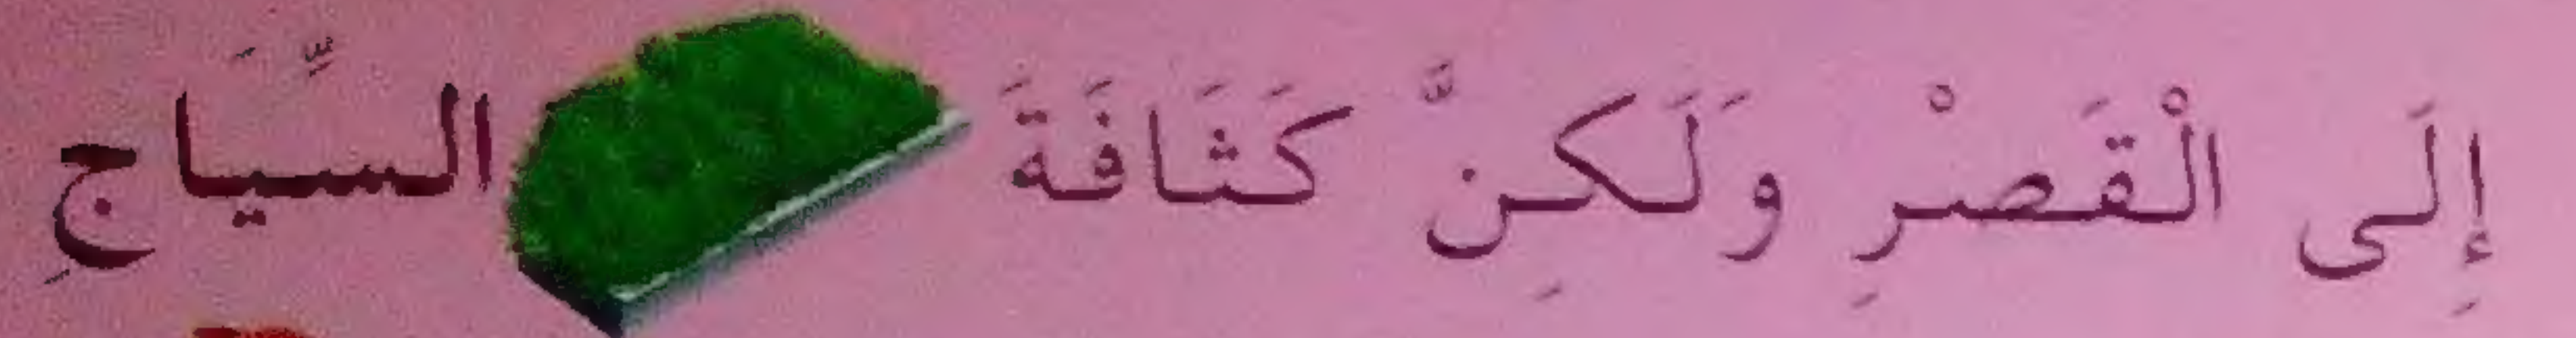 إِلَى الْقَصْرِ وَلَكِنَّ كَثَافَةَ السِّيَاجِ